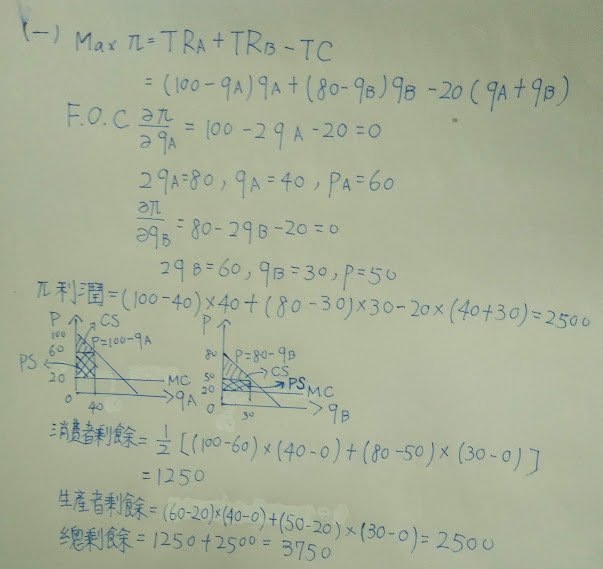 (一) Max π=TRA+TRB-TC
=(100-qA)qA+(80-qB)qB-20(qA+qB)
F.O.C ∂π/∂qA=100-2qA-20=0
2qA=80, qA=40, PA=60
∂π/∂qB=80-2qB-20=0
2qB=60, qB=30, P=50
π利潤=(100-40)×40+(80-30)×30-20×(40+30)=2500
P 100 60 20 0 40 CS P=100-qA PS MC qA
P 80 50 20 0 30 P=80-qB CS PS MC qB
消費者剩餘=1/2[(100-60)×(40-0)+(80-50)×(30-0)]
=1250
生產者剩餘=(60-20)×(40-0)+(50-20)×(30-0)=2500
總剩餘=1250+2500=3750